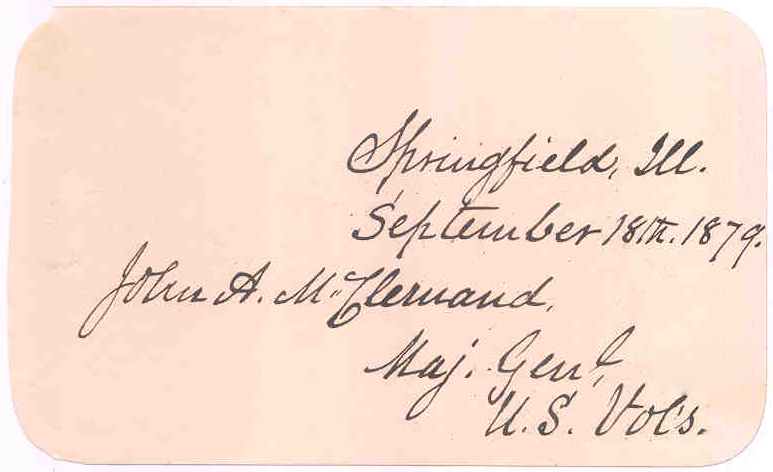 Springfield, Ill.
September 18th. 1879.
John A. McClernand.
Maj. Genl.
U. S. Vols.